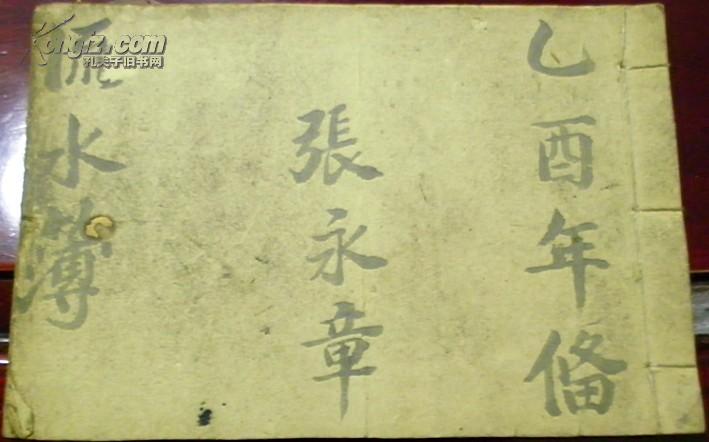 乙酉年偹
張永章
流水簿
Kongfz.com
孔夫子旧书网